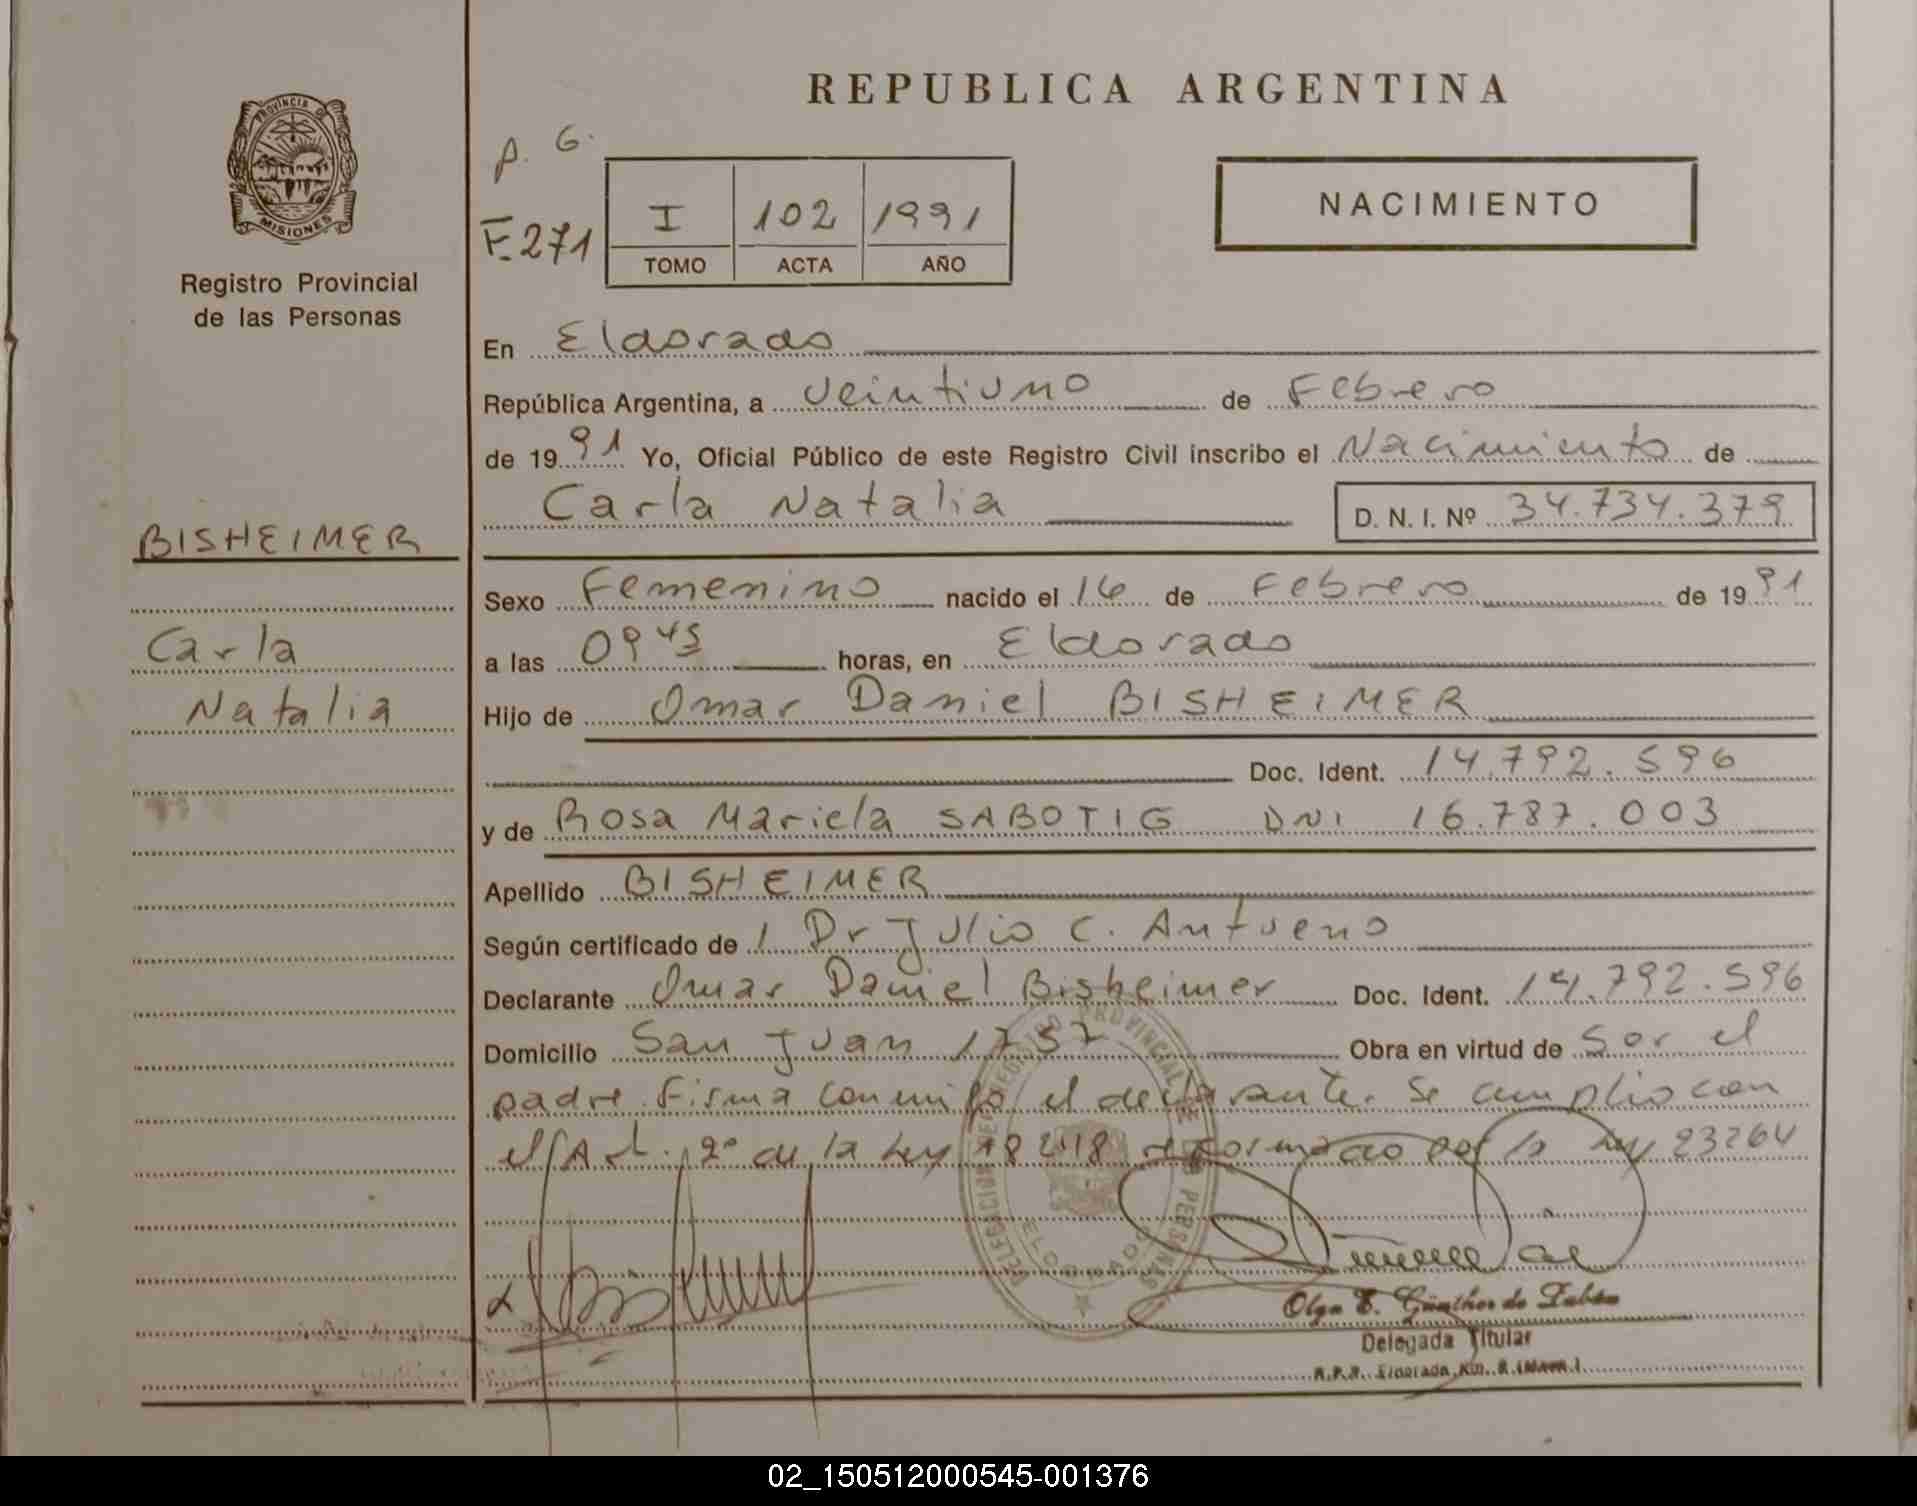 REPUBLICA ARGENTINA
PROVINCIA DE
MISIONES
Registro Provincial
de las Personas
P. G.
F. 271
I 102 1991
TOMO ACTA AÑO
NACIMIENTO
BISHEIMER
Carla
Natalia
En Eldorado
República Argentina, a veintiuno de Febrero
de 1991 Yo, Oficial Público de este Registro Civil inscribo el Nacimiento de
Carla Natalia D. N. I. Nº 34.734.379
Sexo Femenino nacido el 16 de Febrero de 1991
a las 09 45 horas, en Eldorado
Hijo de Omar Daniel BISHEIMER
Doc. Ident. 14.792.596
y de Rosa Mariela SABOTIG DNI 16.787.003
Apellido BISHEIMER
Según certificado de l Dr Julio C. Antueno
Declarante Omar Daniel Bisheimer Doc. Ident. 14.792.596
Domicilio San Juan 1737 Obra en virtud de Ser el
padre. Firma conmigo el declarante. Se cumplio con
el Art. 2º de la Ley 18248 reformado por la Ley 23264
DELEGACION REGISTRO PROVINCIAL DE PERSONAS
ELDORADO
Olga E. Günther de
Delegada Titular
R.P.P. Eldorado, Km. 9 (Mnes.)
02_150512000545-001376